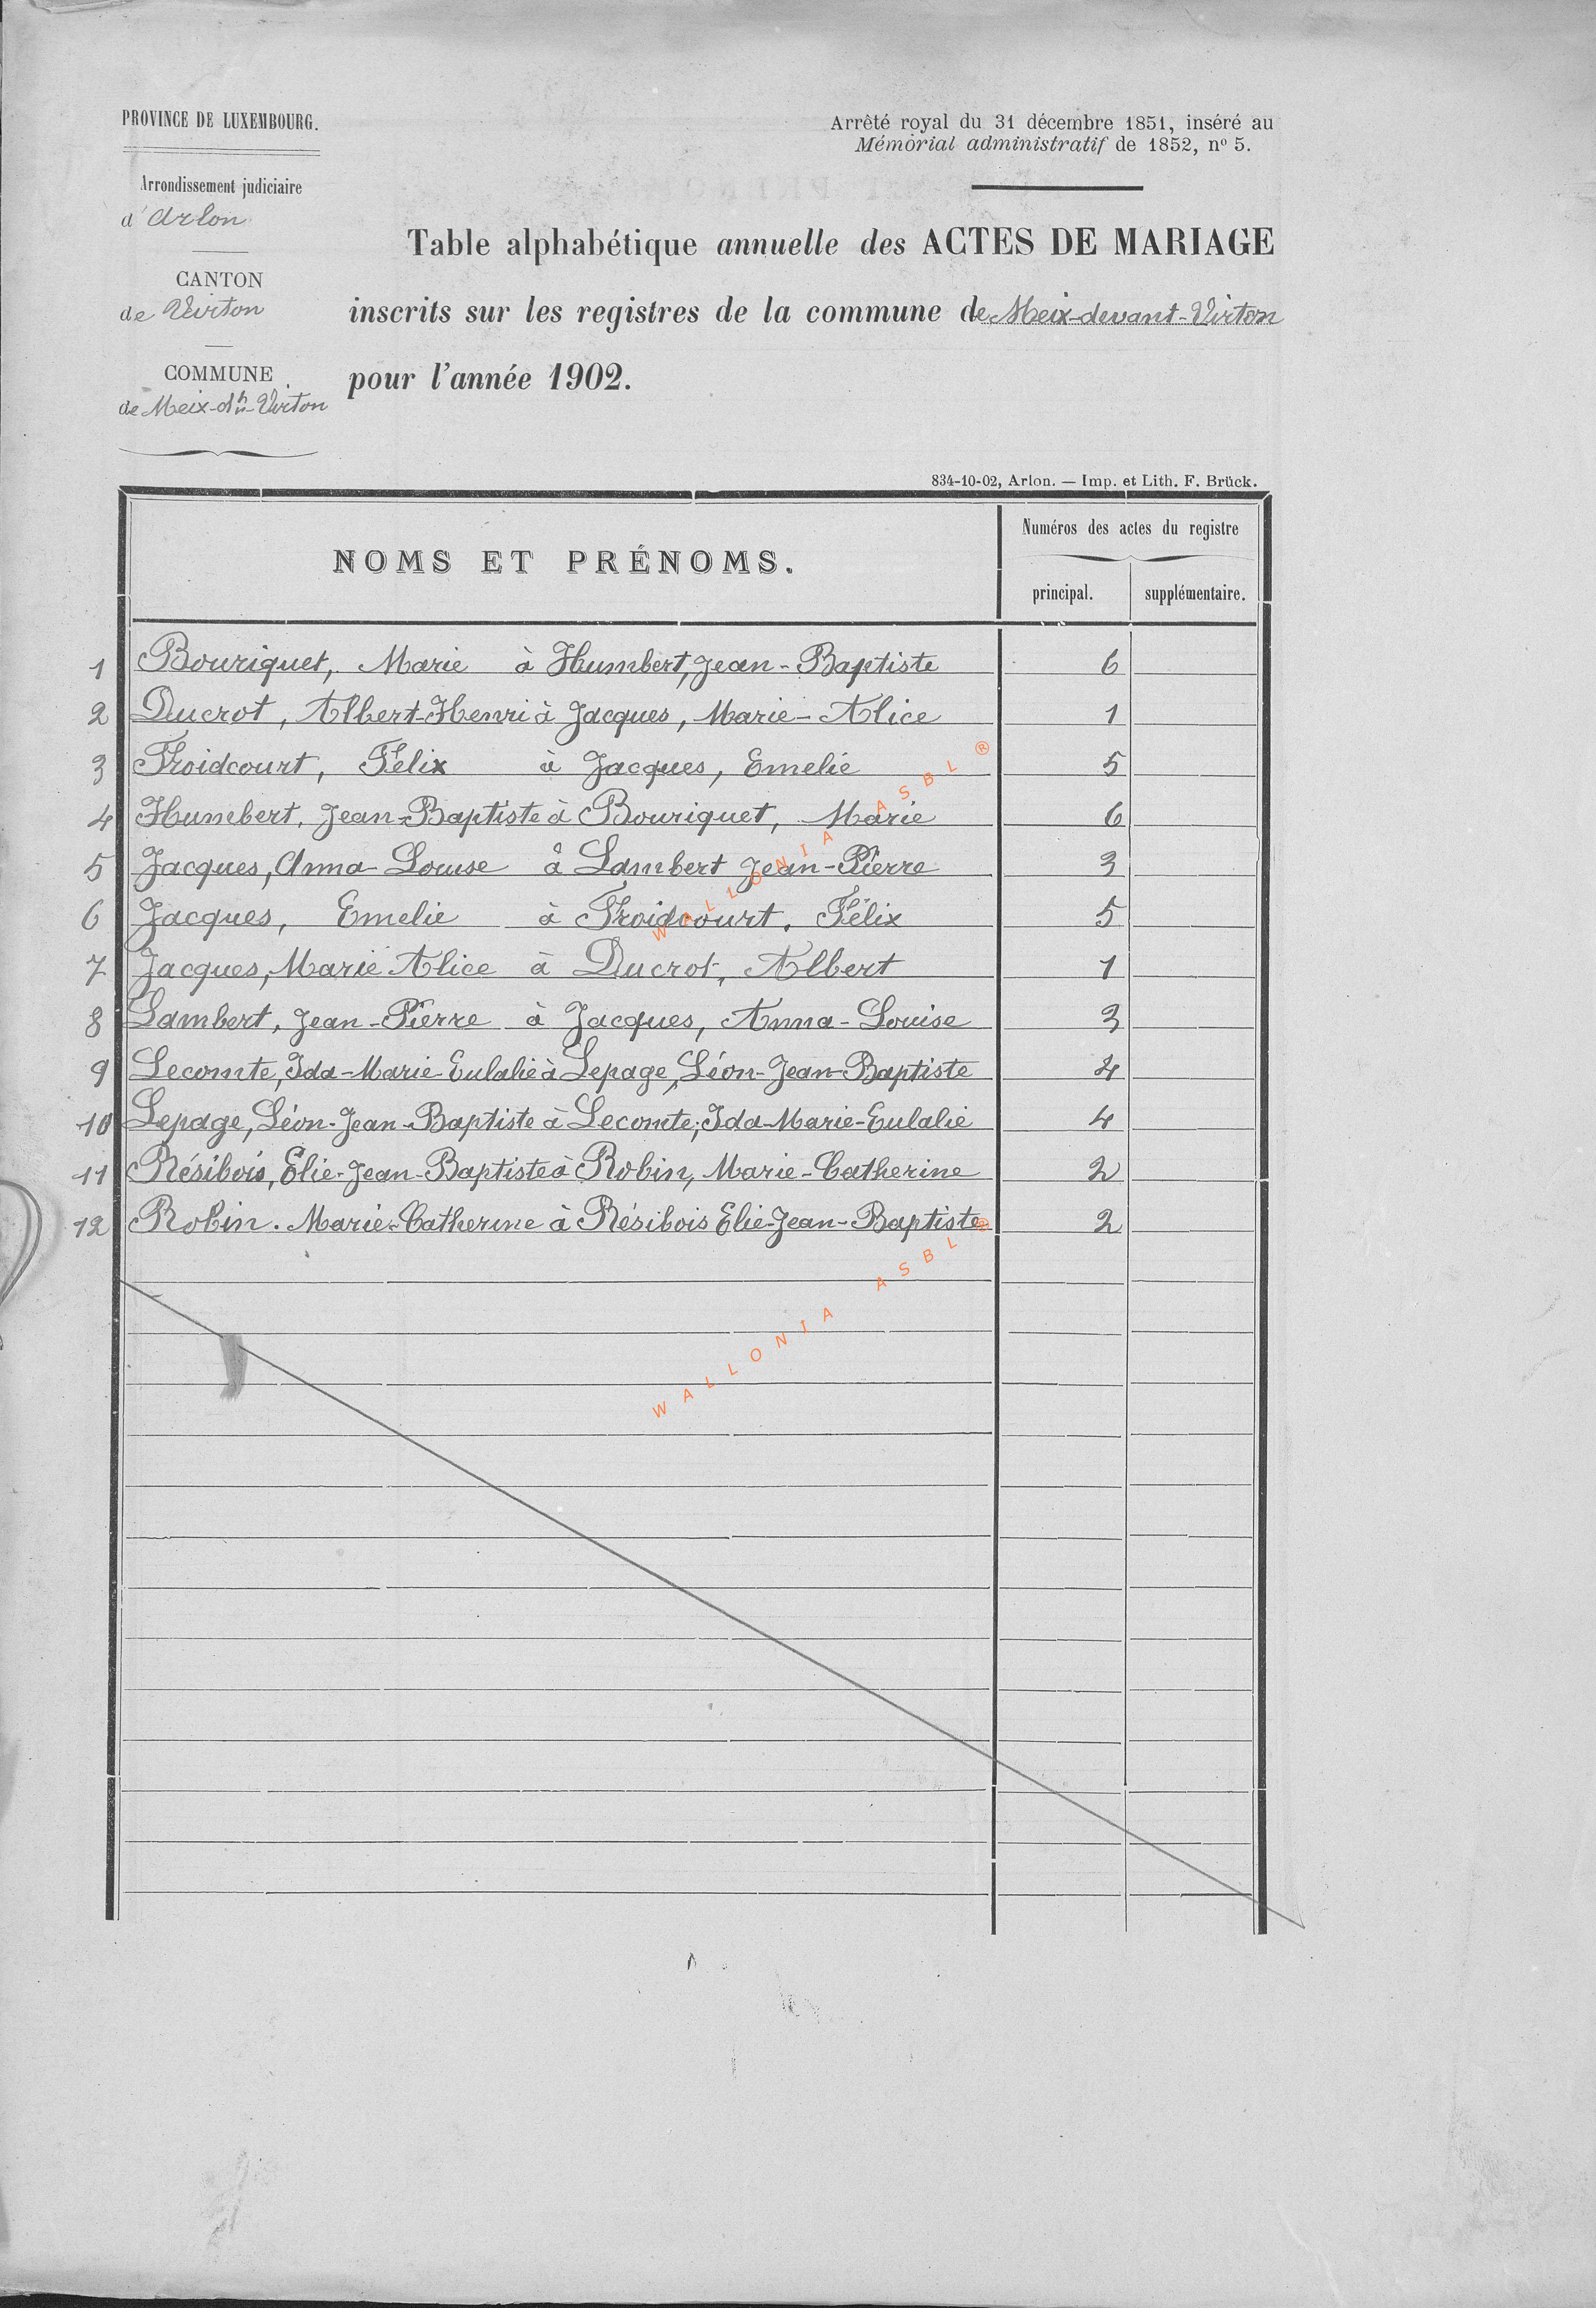 PROVINCE DE LUXEMBOURG.
Arrondissement judiciaire
d'Arlon
CANTON
de Virton
COMMUNE
de Meix-dt-Virton
Arrêté royal du 31 décembre 1851, inséré au
Mémorial administratif de 1852, no 5.
Table alphabétique annuelle des ACTES DE MARIAGE
inscrits sur les registres de la commune de Meix-devant-Virton
pour l'année 1902.
834-10-02, Arlon. — Imp. et Lith. F. Brück.
NOMS ET PRÉNOMS.
Numéros des actes du registre
principal. supplémentaire.
1 Bouriquet, Marie à Humbert, Jean-Baptiste 6
2 Ducrot, Albert-Henri à Jacques, Marie-Alice 1
3 Froidcourt, Félix à Jacques, Emelie 5
4 Humbert, Jean-Baptiste à Bouriquet, Marie 6
5 Jacques, Anna-Louise à Lambert Jean-Pierre 3
6 Jacques, Emelie à Froidcourt, Félix 5
7 Jacques, Marie Alice à Ducrot, Albert 1
8 Lambert, Jean-Pierre à Jacques, Anna-Louise 3
9 Lecomte, Ida-Marie-Eulalie à Lepage, Léon-Jean-Baptiste 4
10 Lepage, Léon-Jean-Baptiste à Lecomte, Ida-Marie-Eulalie 4
11 Résibois, Elie-Jean-Baptiste à Robin, Marie-Catherine 2
12 Robin. Marie-Catherine à Résibois Elie-Jean-Baptiste 2
WALLONIA ASBL ®
WALLONIA ASBL ®